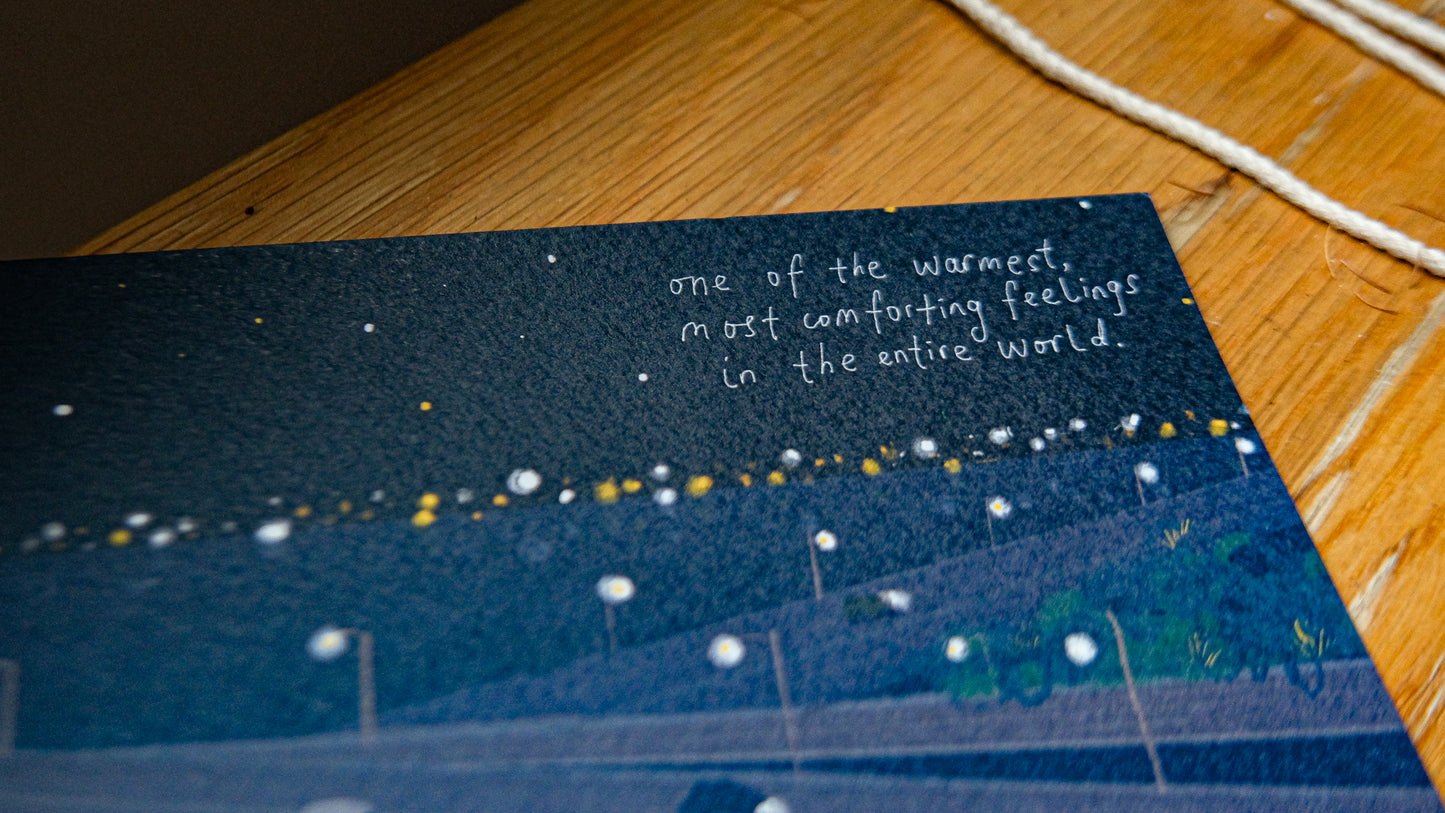 one of the warmest,
most comforting feelings
in the entire world.